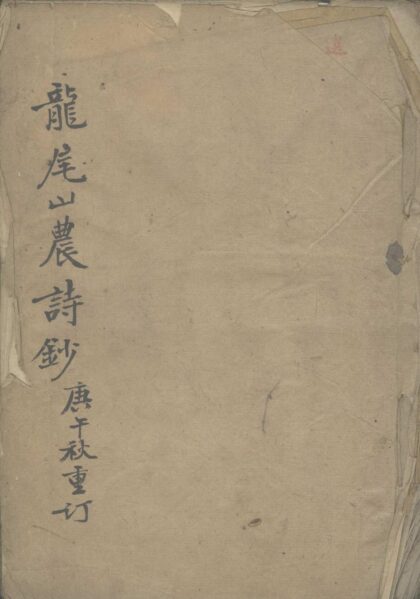 龍尾山農詩鈔庚午秋重訂